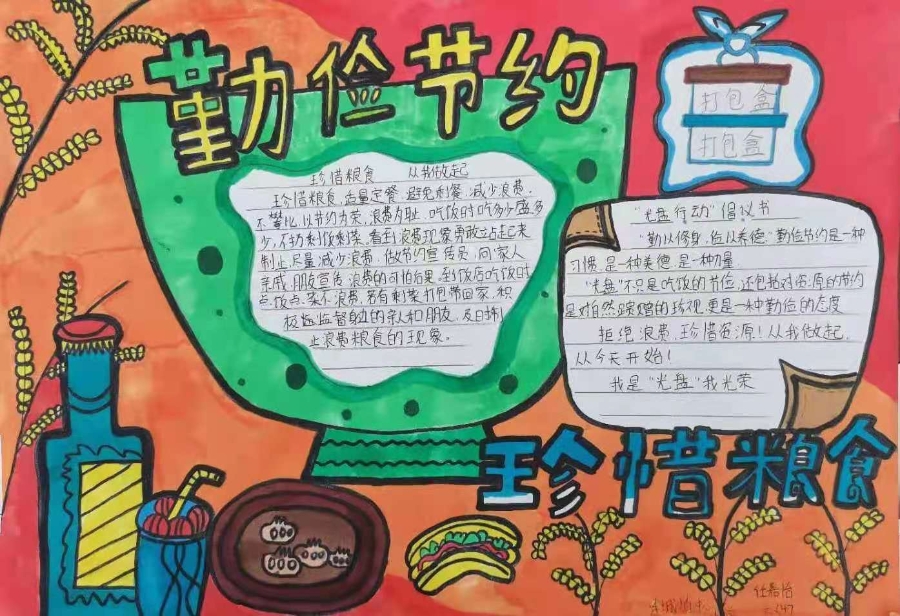 勤俭节约
打包盒
打包盒
珍惜粮食 从我做起
珍惜粮食,适量定餐,避免剩餐,减少浪费.
不攀比,以节约为荣,浪费为耻.吃饭时吃多少盛多
少,不扔剩饭剩菜,看到浪费现象勇敢站起来
制止,尽量减少浪费.做节约宣传员,向家人
亲戚、朋友宣传浪费的可怕后果.到饭店吃饭时
点饭、点菜不浪费,若有剩菜打包带回家,积
极监督身边的亲人和朋友,及时制
止浪费粮食的现象。
"光盘行动"倡议书
"勤以修身,俭以养德."勤俭节约是一种
习惯,是一种美德,是一种力量
"光盘"不只是吃饭的节俭,还包括对资源的节约
是对自然馈赠的珍视,更是一种勤俭的态度
拒绝浪费,珍惜资源!从我做起,
从今天开始!
我是"光盘"我光荣
珍惜粮食